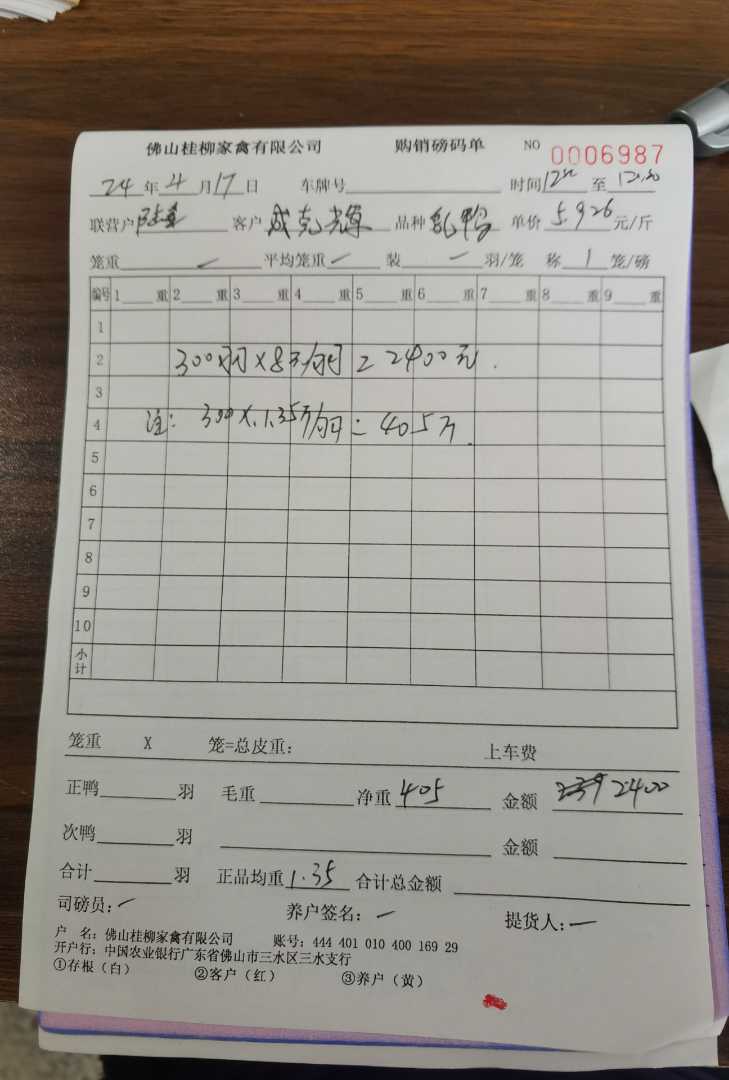 佛山桂柳家禽有限公司 购销磅码单 NO 0006987
24年4月17日 车牌号 时间12 至12:20
联营户 客户成克辉 品种乳鸭 单价5.926元/斤
笼重 平均笼重 装 羽/笼 称1笼/磅
编号 1 重 2 重 3 重 4 重 5 重 6 重 7 重 8 重 9 重
1
2 300羽×8元/羽=2400元.
3
4 注: 300×1.35斤/羽=405斤.
5
6
7
8
9
10
小计
笼重 X 笼=总皮重: 上车费
正鸭 羽 毛重 净重405 金额 2400
次鸭 羽 金额
合计 羽 正品均重1.35 合计总金额
司磅员: 养户签名: 提货人:
户 名: 佛山桂柳家禽有限公司 账号: 444 401 010 400 169 29
开户行: 中国农业银行广东省佛山市三水区三水支行
①存根(白) ②客户(红) ③养户(黄)